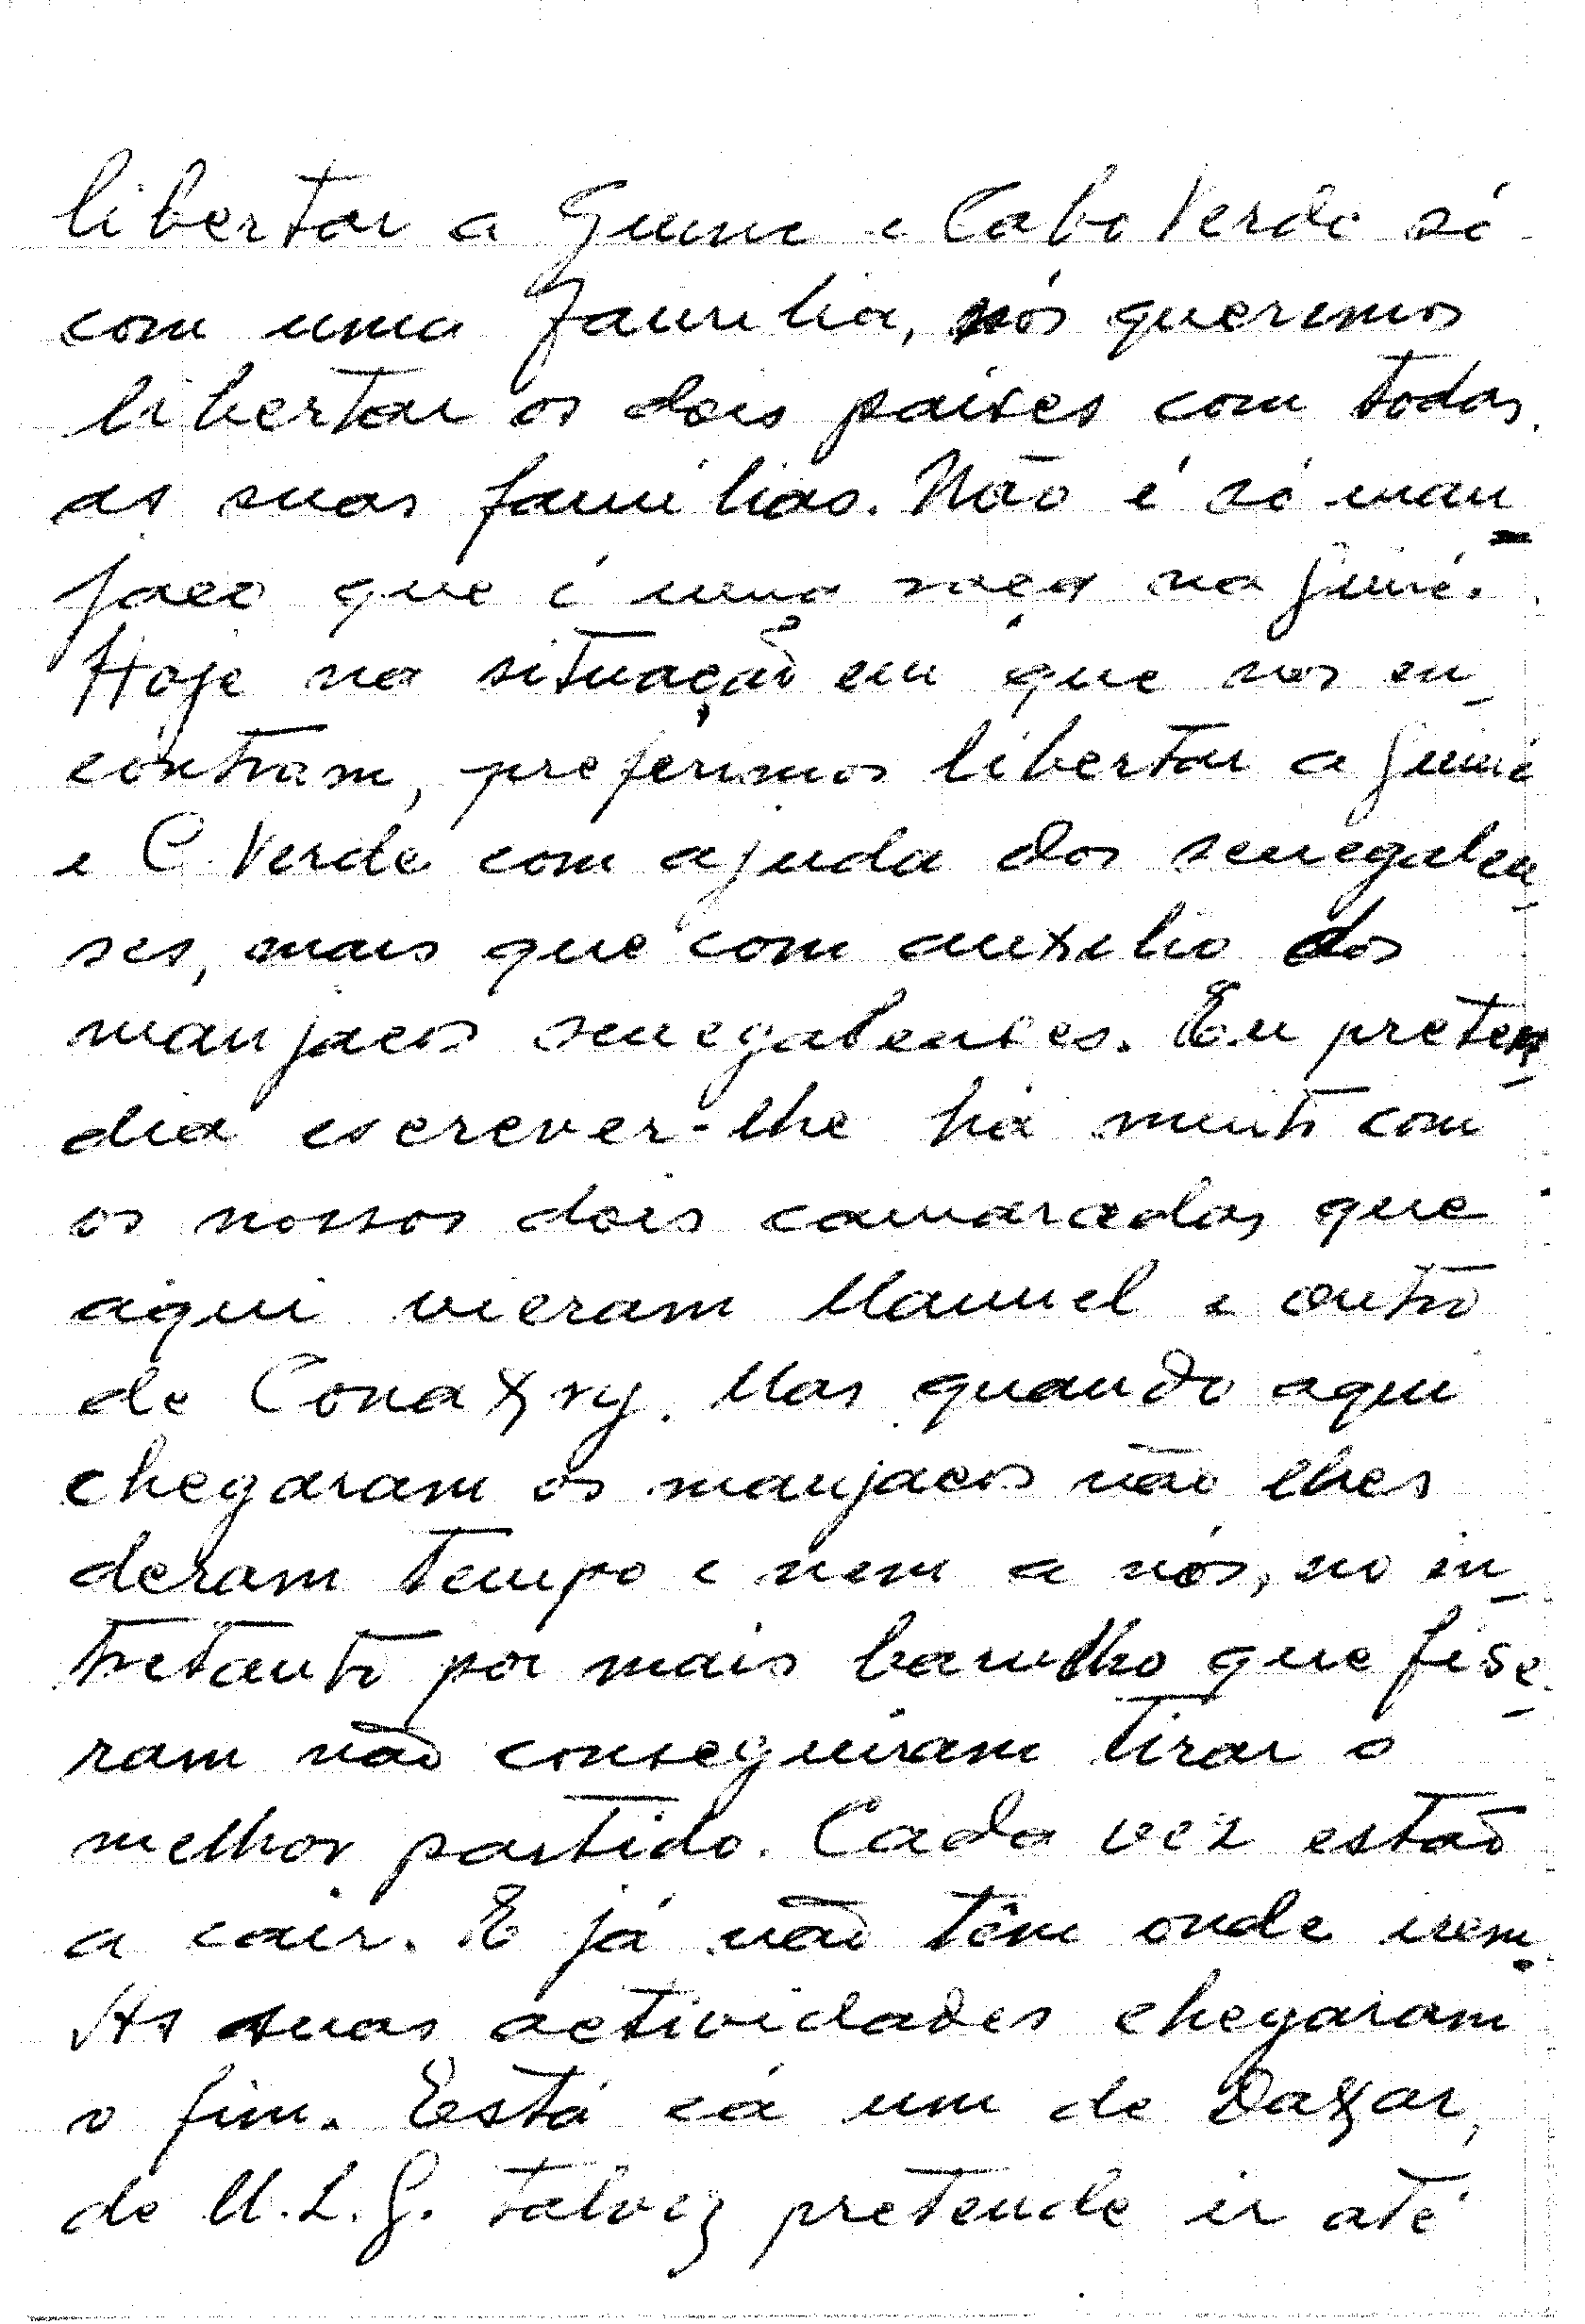 libertar a Guiné e Cabo Verde só
com uma familia, nós queremos
libertar os dois paises com todas
as suas familias. Não é só man-
jaco que é uma raça na Guiné.
Hoje na situação em que nos en-
contram, preferimos libertar a Guiné
e C. Verde com ajuda dos senegalen-
ses, mais que com auxilio dos
manjacos senegalenses. Eu preten-
dia escrever-lhe há muito com
os nossos dois camaradas que
aqui vieram Manuel e outro
de Conakry. Mas quando aqui
chegaram os manjacos não lhes
deram tempo e nem a nós, no en-
tretanto por mais barulho que fise-
ram não conseguiram tirar o
melhor partido. Cada vez estão
a cair. E já não têm onde irem.
As suas actividades chegaram
o fim. Está cá um de Dakar,
de M.L.G. talvez pretende ir até